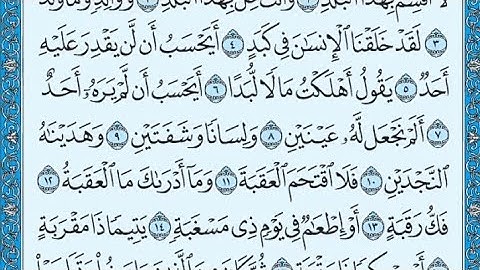 لَا أُقْسِمُ بِهَٰذَا ٱلْبَلَدِ ١ وَأَنتَ حِلٌّۢ بِهَٰذَا ٱلْبَلَدِ ٢ وَوَالِدٍ وَمَا وَلَدَ
٣ لَقَدْ خَلَقْنَا ٱلْإِنسَٰنَ فِى كَبَدٍ ٤ أَيَحْسَبُ أَن لَّن يَقْدِرَ عَلَيْهِ
أَحَدٌ ٥ يَقُولُ أَهْلَكْتُ مَالًا لُّبَدًا ٦ أَيَحْسَبُ أَن لَّمْ يَرَهُۥٓ أَحَدٌ
٧ أَلَمْ نَجْعَل لَّهُۥ عَيْنَيْنِ ٨ وَلِسَانًا وَشَفَتَيْنِ ٩ وَهَدَيْنَٰهُ
ٱلنَّجْدَيْنِ ١٠ فَلَا ٱقْتَحَمَ ٱلْعَقَبَةَ ١١ وَمَآ أَدْرَىٰكَ مَا ٱلْعَقَبَةُ ١٢
فَكُّ رَقَبَةٍ ١٣ أَوْ إِطْعَٰمٌ فِى يَوْمٍ ذِى مَسْغَبَةٍ ١٤ يَتِيمًا ذَا مَقْرَبَةٍ